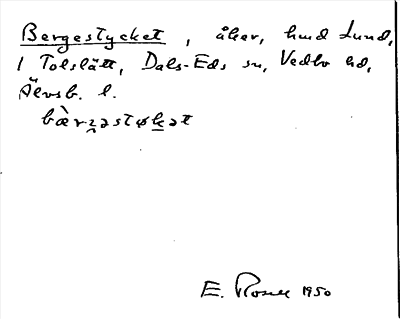 Bergestycket, åker, hmd Lund,
1 Tolslätt, Dals-Eds sn, Vedbo hd,
Älvsb. l.
bæ̀rʒəstøkət
E. Rosell 1950